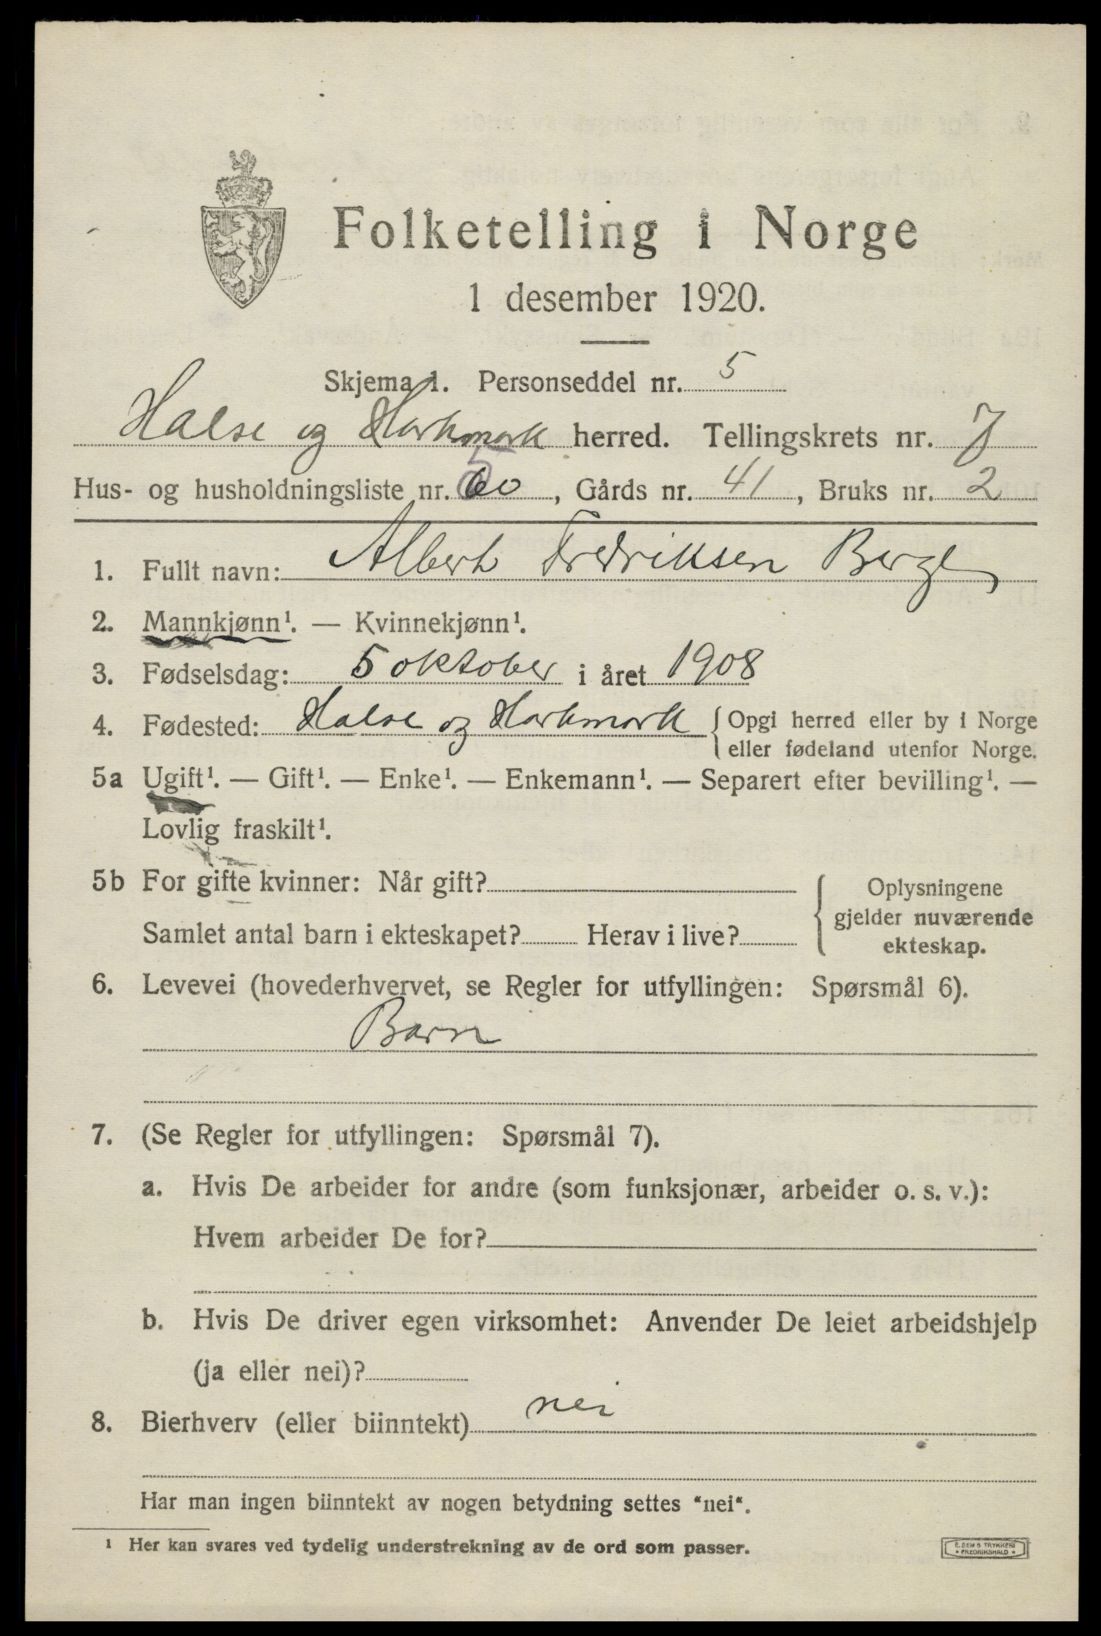 Folketelling i Norge
1 desember 1920.
Skjema 1. Personseddel nr. 5
Halse og Harkmark herred. Tellingskrets nr. 7
Hus- og husholdningsliste nr. 50, Gårds nr. 41, Bruks nr. 2
1. Fullt navn: Albert Fredriksen Berge
2. Mannkjønn¹. — Kvinnekjønn¹.
3. Fødselsdag: 5 oktober i året 1908
4. Fødested: Halse og Harkmark { Opgi herred eller by i Norge
eller fødeland utenfor Norge.
5a Ugift¹. — Gift¹. — Enke¹. — Enkemann¹. — Separert efter bevilling¹. —
Lovlig fraskilt¹.
5b For gifte kvinner: Når gift?
Samlet antal barn i ekteskapet? Herav i live?
Oplysningene
gjelder nuværende
ekteskap.
6. Levevei (hovederhvervet, se Regler for utfyllingen: Spørsmål 6).
Barn
7. (Se Regler for utfyllingen: Spørsmål 7).
a. Hvis De arbeider for andre (som funksjonær, arbeider o. s. v.):
Hvem arbeider De for?
b. Hvis De driver egen virksomhet: Anvender De leiet arbeidshjelp
(ja eller nei)?
8. Bierhverv (eller biinntekt) nei
Har man ingen biinntekt av nogen betydning settes "nei".
¹ Her kan svares ved tydelig understrekning av de ord som passer.
E. SEM'S TRYKKERI
FREDRIKSHALD